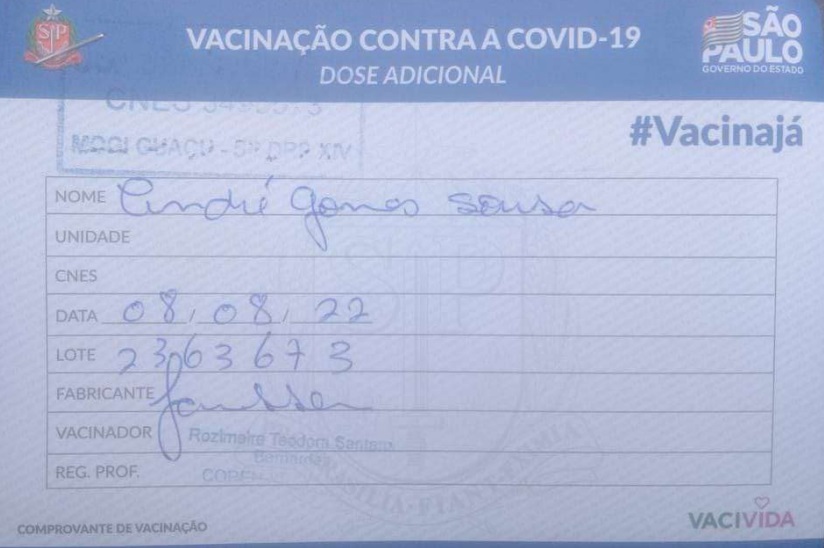 SP
VACINAÇÃO CONTRA A COVID-19
DOSE ADICIONAL
SÃO PAULO
GOVERNO DO ESTADO
CNES
MOGI GUAÇU - 5ª DRP XIV
#Vacinajá
NOME André Gomes Sousa
UNIDADE
CNES
DATA 08/08/22
LOTE 2363673
FABRICANTE Janssen
VACINADOR Rozimeire Teodoro
REG. PROF. COREN
COMPROVANTE DE VACINAÇÃO
VACIVIDA